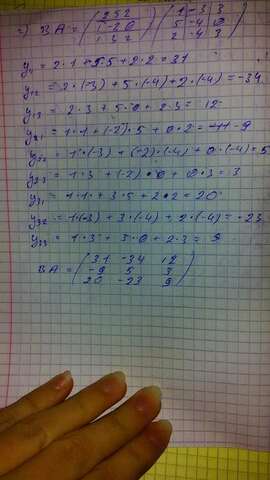 2) BA = (2 5 2 / 1 -2 0 / 1 3 2) (1 -3 3 / 5 -4 0 / 2 -4 3)
y11 = 2·1+5·5+2·2=31
y12 = 2·(-3)+5·(-4)+2·(-4)=-34
y13 = 2·3+5·0+2·3=12
y21 = 1·1+(-2)·5+0·2=-9
y22 = 1·(-3)+(-2)·(-4)+0·(-4)=5
y23 = 1·3+(-2)·0+0·3=3
y31 = 1·1+3·5+2·2=20
y32 = 1·(-3)+3·(-4)+2·(-4)=-23
y33 = 1·3+3·0+2·3=9
BA = (31 -34 12
-9 5 3
20 -23 9)